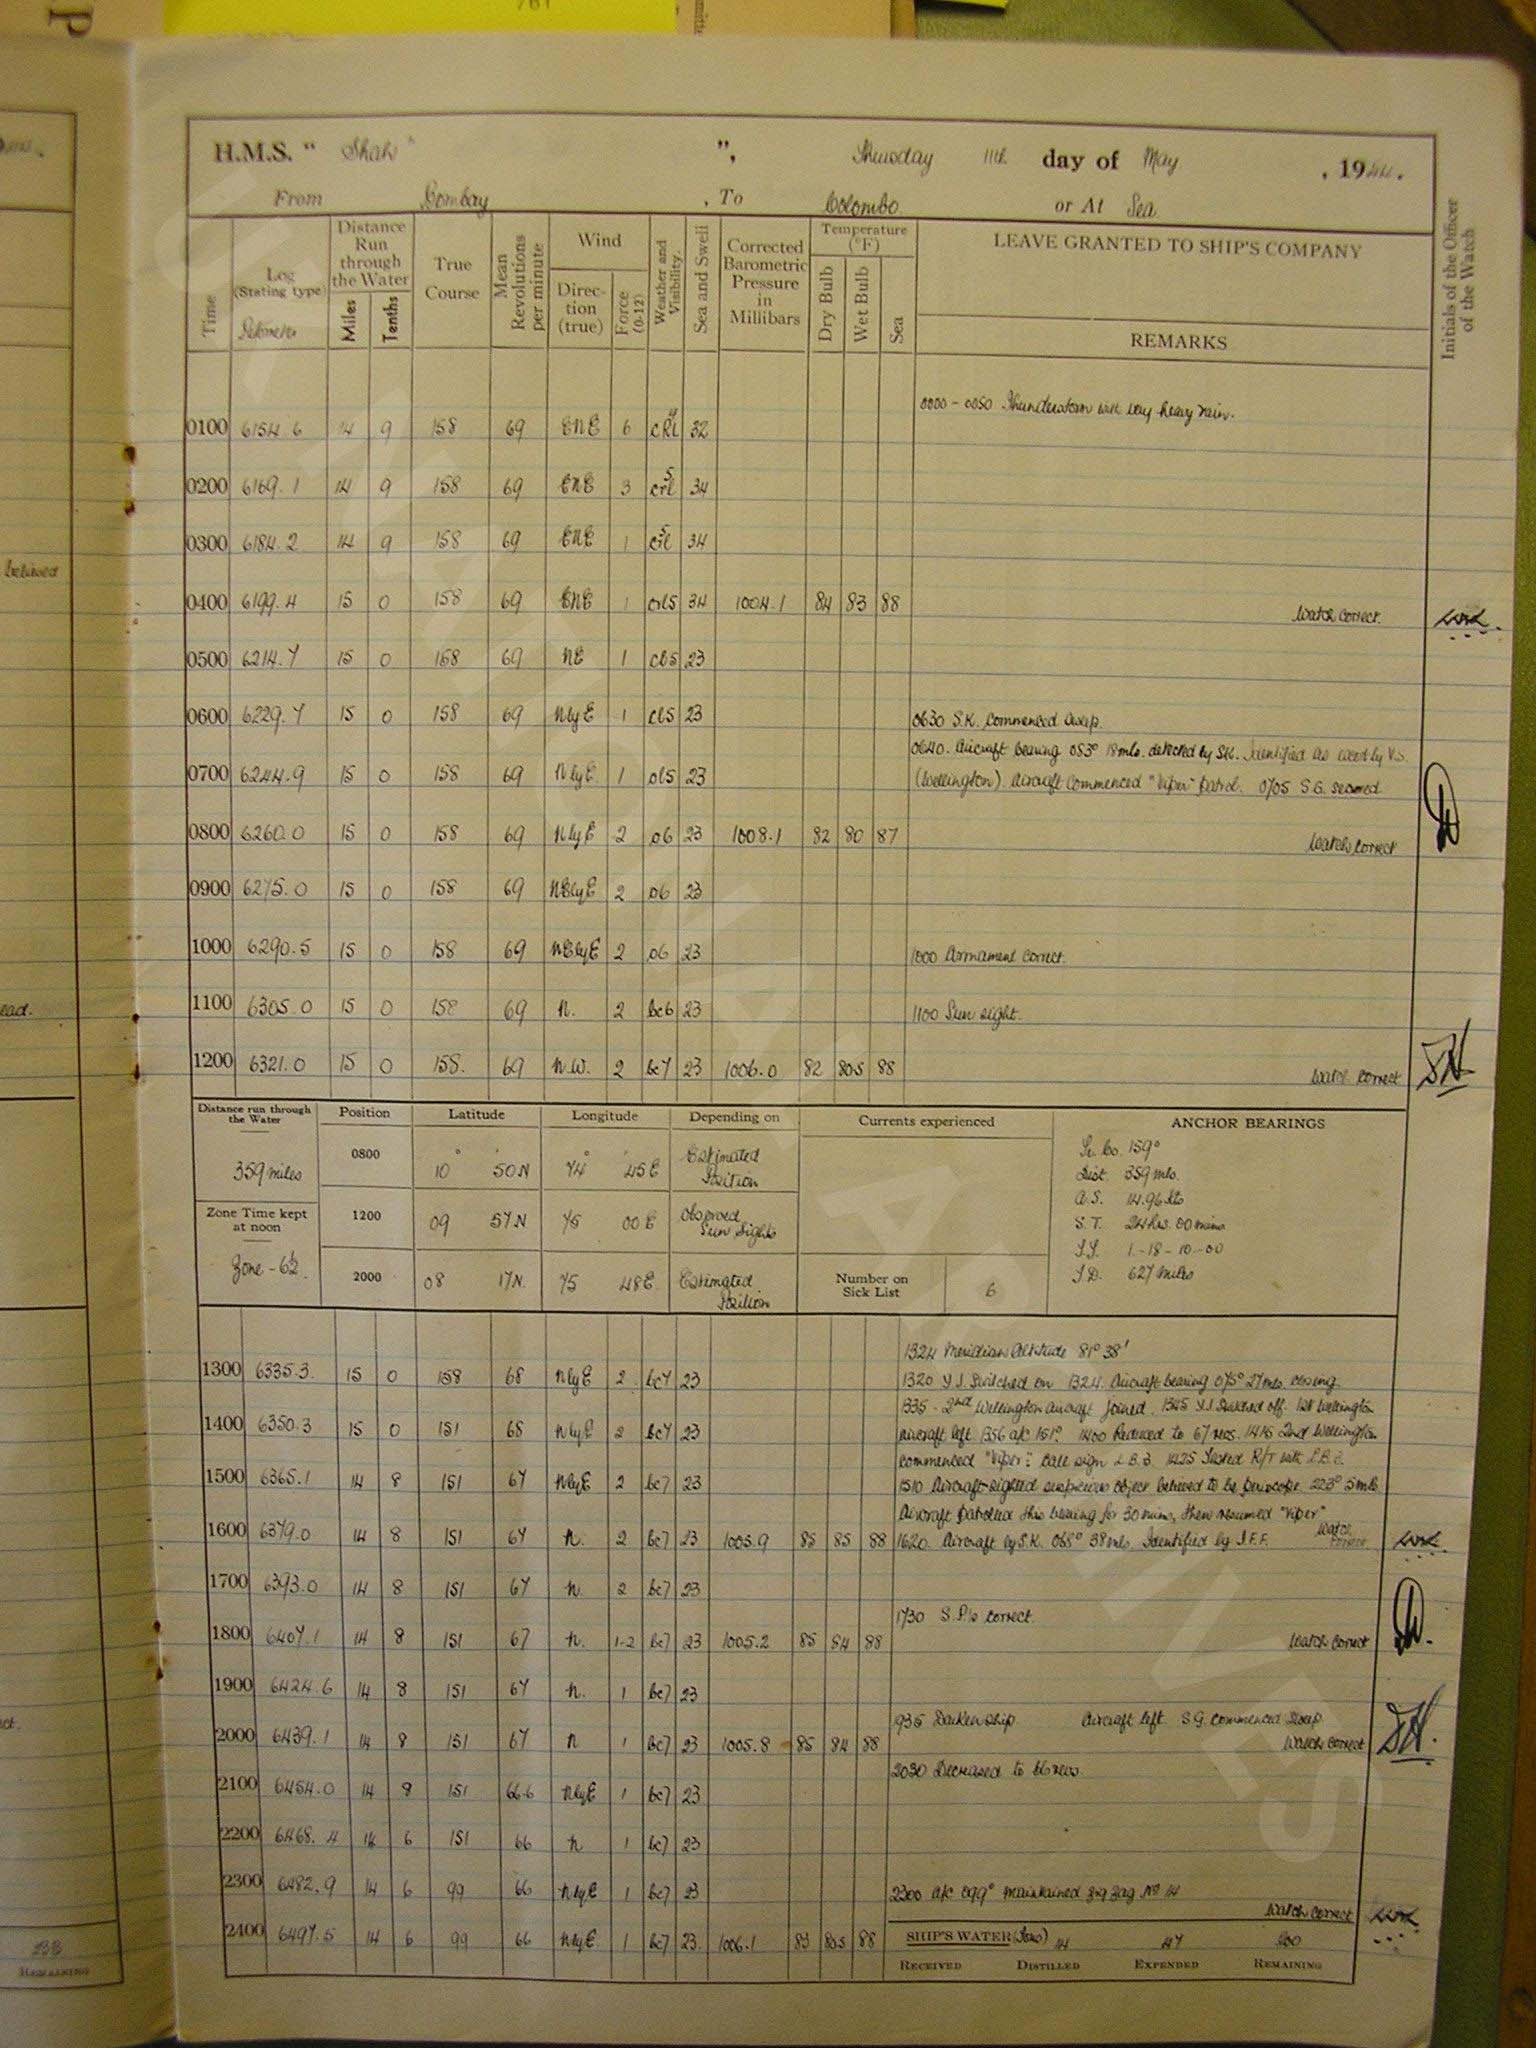 H.M.S. " Shah " ", Thursday 11th day of May , 1944.
From Bombay , To Colombo or At Sea
Time
Log (Stating type)
Distance Run through the Water
Miles
Tenths
True Course
Mean Revolutions per minute
Wind
Direction (true)
Force (0-12)
Weather and Visibility.
Sea and Swell
Corrected Barometric Pressure in Millibars
Temperature (°F)
Dry Bulb
Wet Bulb
Sea
LEAVE GRANTED TO SHIP'S COMPANY
REMARKS
Initials of the Officer of the Watch
0000 - 0050 Thunderstorm with very heavy rain.
0100 6154.6 14 9 158 69 ENE 6 32
0200 6169.1 14 9 158 69 ENE 3 34
0300 6184.2 14 9 158 69 ENE 1 34
0400 6199.4 15 0 158 69 ENE 1 orl5 34 1004.1 84 83 88 Watch correct.
0500 6214.7 15 0 158 69 NE 1 cl5 23
0600 6229.7 15 0 158 69 NlyE 1 cl5 23
0630 S.K. commenced sweep.
0640. Aircraft bearing 053° 18mls. detected by SK. Identified as by V.S.
0700 6244.9 15 0 158 69 NlyE 1 ol5 23 (Wellington). Aircraft commenced "Viper" patrol. 0705 S.G. secured
0800 6260.0 15 0 158 69 NlyE 2 o6 23 1008.1 82 80 87 Watch correct
0900 6275.0 15 0 158 69 NElyE 2 o6 23
1000 6290.5 15 0 158 69 NElyE 2 o6 23 1000 Armament correct.
1100 6305.0 15 0 158 69 N. 2 bc6 23 1100 Sun sight.
1200 6321.0 15 0 158. 69 N.W. 2 bc7 23 1006.0 82 80.5 88 Watch correct
Distance run through the Water
359 miles
Zone Time kept at noon
Zone -6½
Position Latitude Longitude Depending on
0800 10° 50'N 74° 45'E Estimated Position
1200 09 57N 75 00E Observed Sun Sights
2000 08 17N. 75 48E Estimated Position
Currents experienced
Number on Sick List 6
ANCHOR BEARINGS
Tr. Co. 159°
Dist. 359 mls.
A.S. 14.96 kts
S.T. 24 hrs. 00 mins
T.T. 1 - 18 - 10 - 00
T.D. 627 miles
1324 Meridian Altitude 81° 38'
1300 6335.3 15 0 158 68 NlyE 2 bc7 23 1320 Y.J. Switched on 1324. Aircraft bearing 075° 27mls. closing.
1335 - 2nd Wellington aircraft joined. 1345 Y.J. Switched off. 1st Wellington
1400 6350.3 15 0 151 68 NlyE 2 bc7 23 aircraft left. 1356 a/c 151°. 1400 Reduced to 67 revs. 1415 2nd Wellington
commenced "Viper". Call sign L.B.3. 1425 Tested R/T with L.B.3.
1500 6365.1 14 8 151 67 NlyE 2 bc7 23 1510 Aircraft sighted suspicious object believed to be periscope 223° 5 mls.
Aircraft patrolled this bearing for 30 mins, then resumed "Viper"
1600 6379.0 14 8 151 67 N. 2 bc7 23 1005.9 85 85 88 1620. Aircraft by S.K. 068° 38mls. Identified by I.F.F. Watch correct
1700 6393.0 14 8 151 67 N. 2 bc7 23
1730 S.P.'s correct.
1800 6407.1 14 8 151 67 N. 1-2 bc7 23 1005.2 85 84 88 Watch correct
1900 6424.6 14 8 151 67 N. 1 bc7 23
1935 Darken ship. Aircraft left. S.G. commenced sweep.
2000 6439.1 14 8 151 67 N 1 bc7 23 1005.8 85 84 88 Watch correct
2030 Decreased to 66 revs.
2100 6454.0 14 8 151 66.6 NlyE 1 bc7 23
2200 6468.4 14 6 151 66 N 1 bc7 23
2300 6482.9 14 6 99 66 NlyE 1 bc7 23 2300 a/c 099° maintained zig zag No 14
Watch correct
2400 6497.5 14 6 99 66 NlyE 1 bc7 23. 1006.1 83 80.5 88 SHIP'S WATER (Tons) 14 47 200
RECEIVED DISTILLED EXPENDED REMAINING
believed
ead.
REMAINING